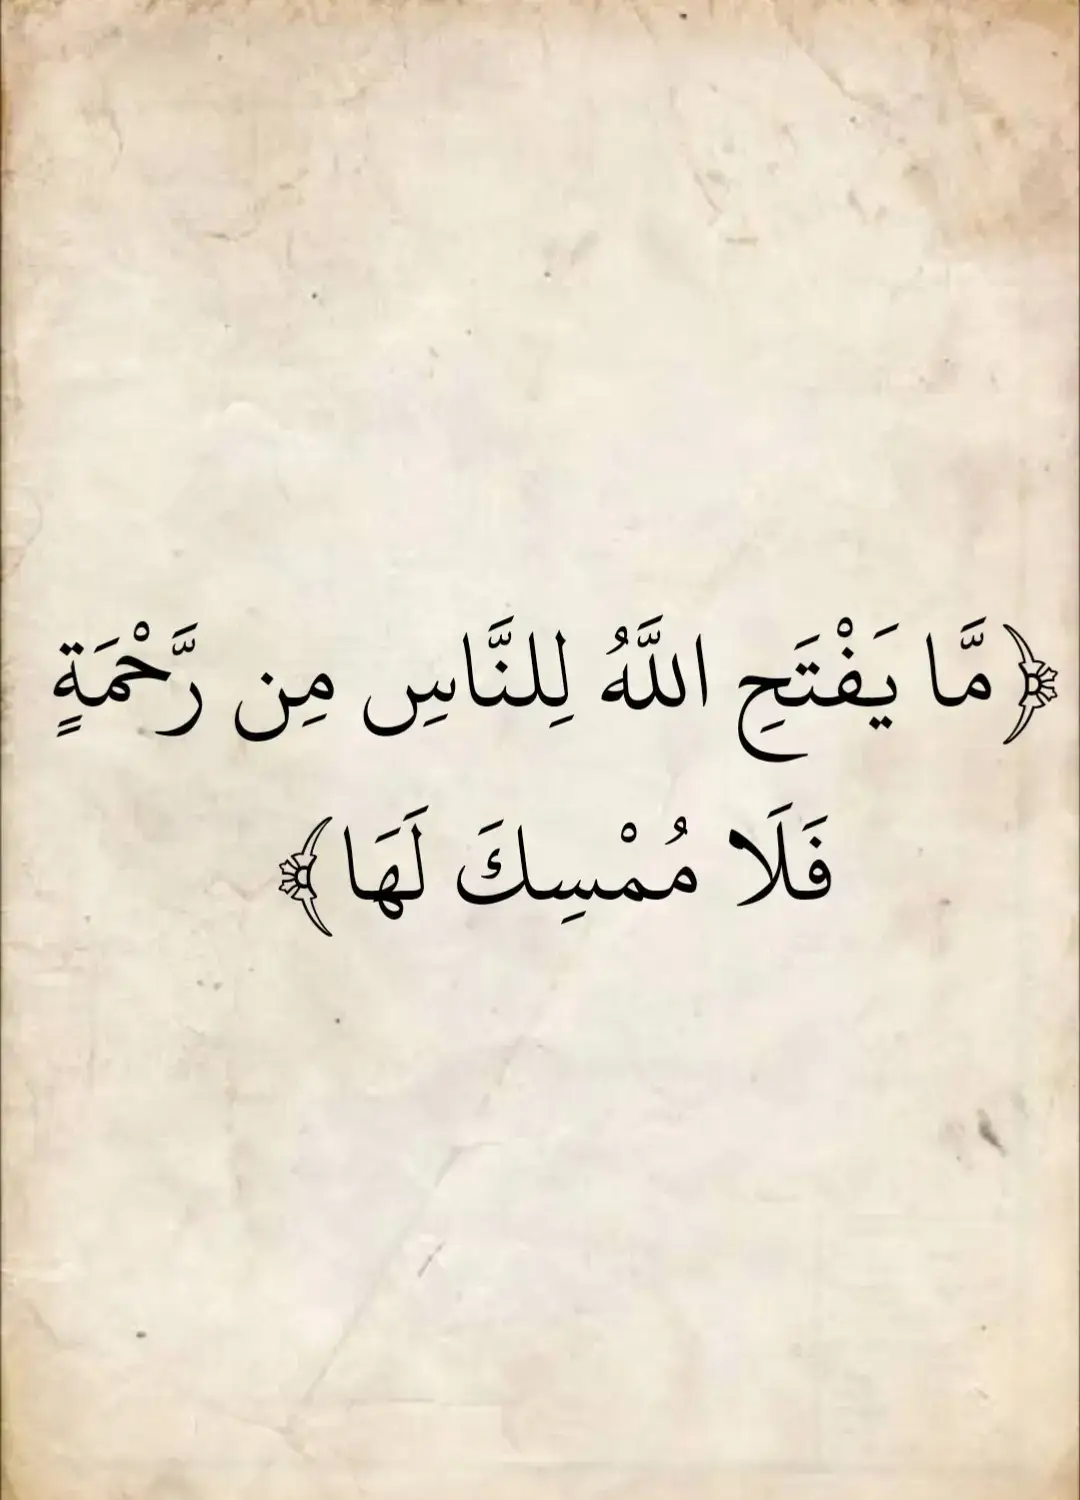 ﴿مَّا يَفْتَحِ اللَّهُ لِلنَّاسِ مِن رَّحْمَةٍ
فَلَا مُمْسِكَ لَهَا﴾